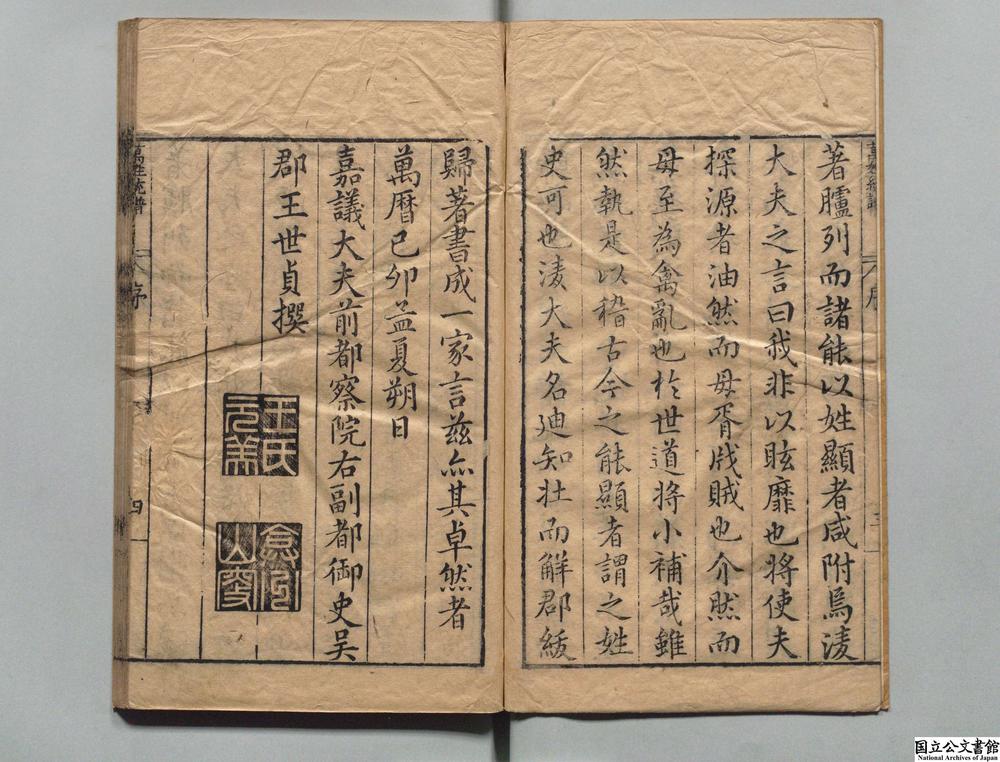 著臚列而諸能以姓顯者咸附焉淩
大夫之言曰我非以眩靡也將使夫
探源者油然而毋胥戕賊也介然而
毋至為禽亂也於世道將小補哉雖
然孰是以稽古今之能顯者謂之姓
史可也淩大夫名迪知壯而解郡紱
歸著書成一家言茲亦其卓然者
萬曆己卯孟夏朔日
嘉議大夫前都察院右副都御史吳
郡王世貞撰
王氏
元美
萬姓統譜
序
三
萬姓統譜
序
四
国立公文書館
National Archives of Japan